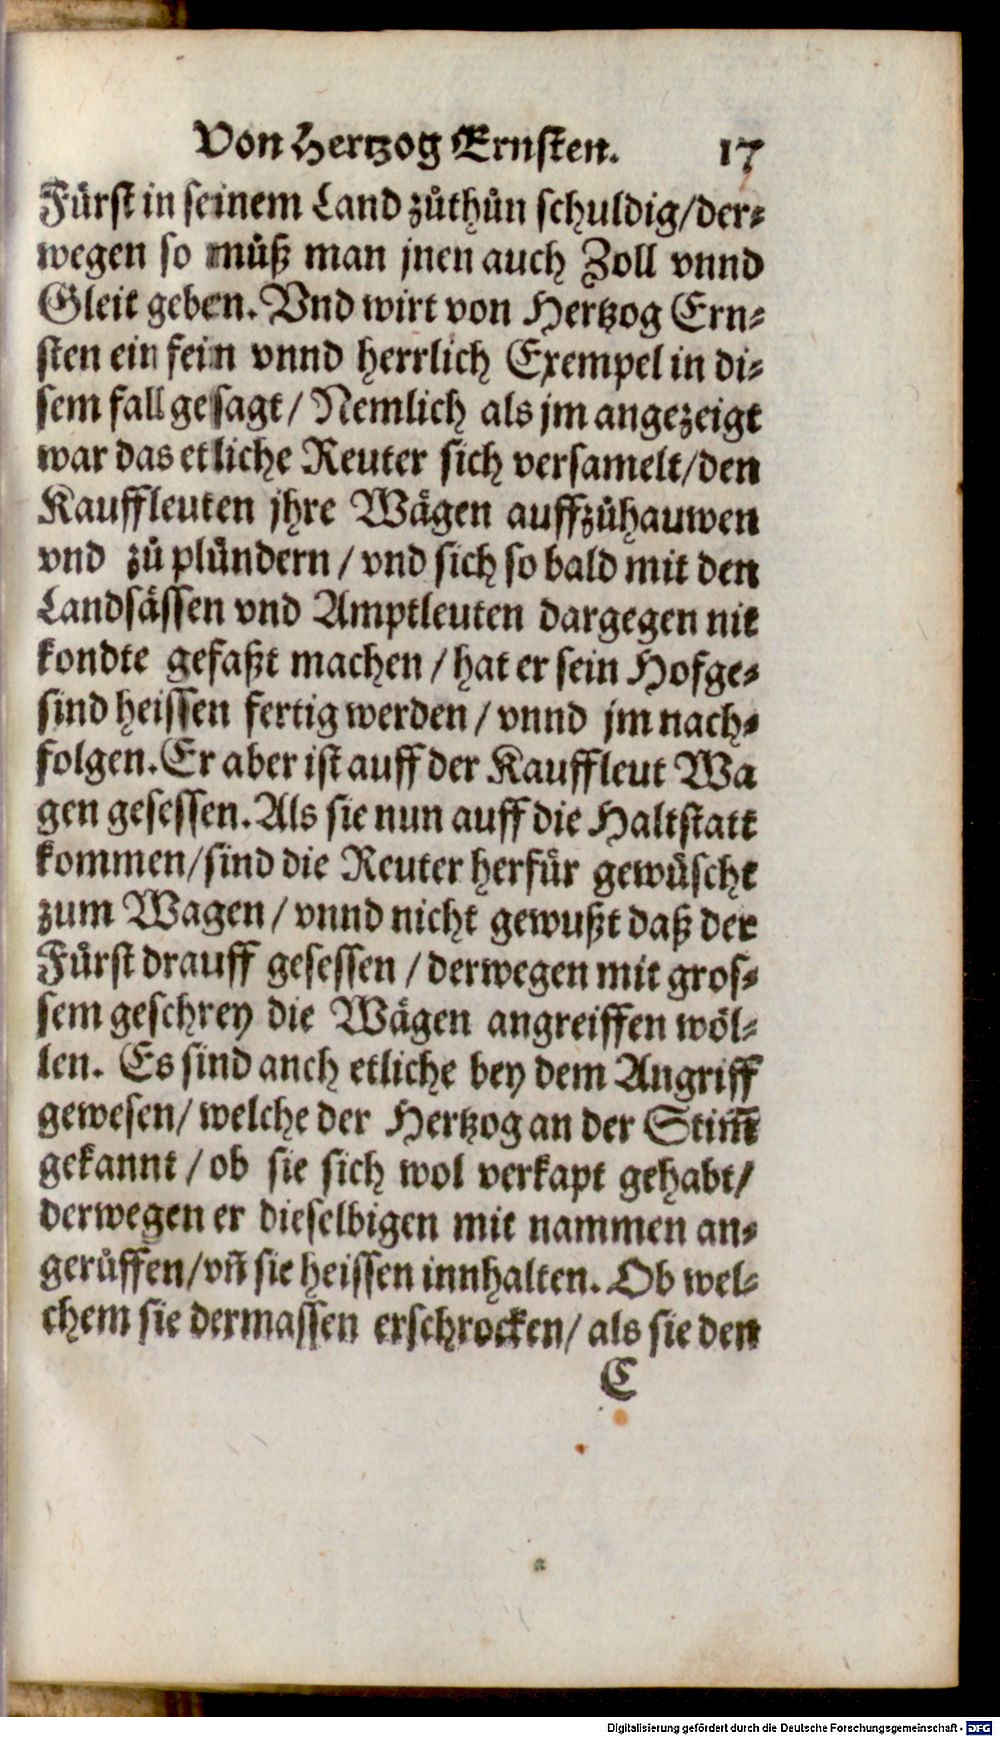 Von Hertzog Ernsten. 17
Fürst in seinem Land zůthůn schuldig/der⸗
wegen so můß man jnen auch Zoll vnnd
Gleit geben. Vnd wirt von Hertzog Ern⸗
sten ein fein vnnd herrlich Exempel in di⸗
sem fall gesagt/ Nemlich als jm angezeigt
war das etliche Reuter sich versamelt/den
Kauffleuten jhre Wägen auffzůhauwen
vnd zů plündern/ vnd sich so bald mit den
Landsässen vnd Amptleuten dargegen nit
kondte gefaßt machen/ hat er sein Hofge⸗
sind heissen fertig werden/ vnnd jm nach⸗
folgen. Er aber ist auff der Kauffleut Wa
gen gesessen. Als sie nun auff die Haltstatt
kommen/sind die Reuter herfür gewüscht
zum Wagen/ vnnd nicht gewußt daß der
Fürst drauff gesessen/ derwegen mit gros⸗
sem geschrey die Wägen angreiffen wöl⸗
len. Es sind anch etliche bey dem Angriff
gewesen/ welche der Hertzog an der Stim̃
gekannt/ ob sie sich wol verkapt gehabt/
derwegen er dieselbigen mit nammen an⸗
gerůffen/vñ sie heissen innhalten. Ob wel⸗
chem sie dermassen erschrocken/ als sie den
C
Digitalisierung gefördert durch die Deutsche Forschungsgemeinschaft - DFG